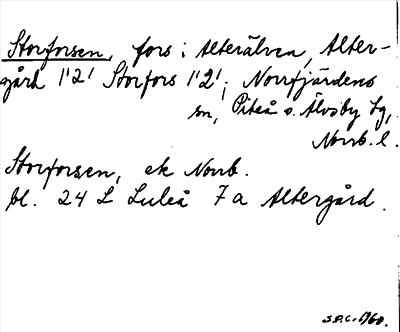 Storforsen, fors i Alterälven, Alter-
gård 1'2' Storfors 1'2'; Norrfjärdens
sn, Piteå o. Älvsby tg,
Norrb. l.
Storforsen, ek Norrb.
bl. 24 L Luleå 7a Altergård.
S.P.C. 1960.